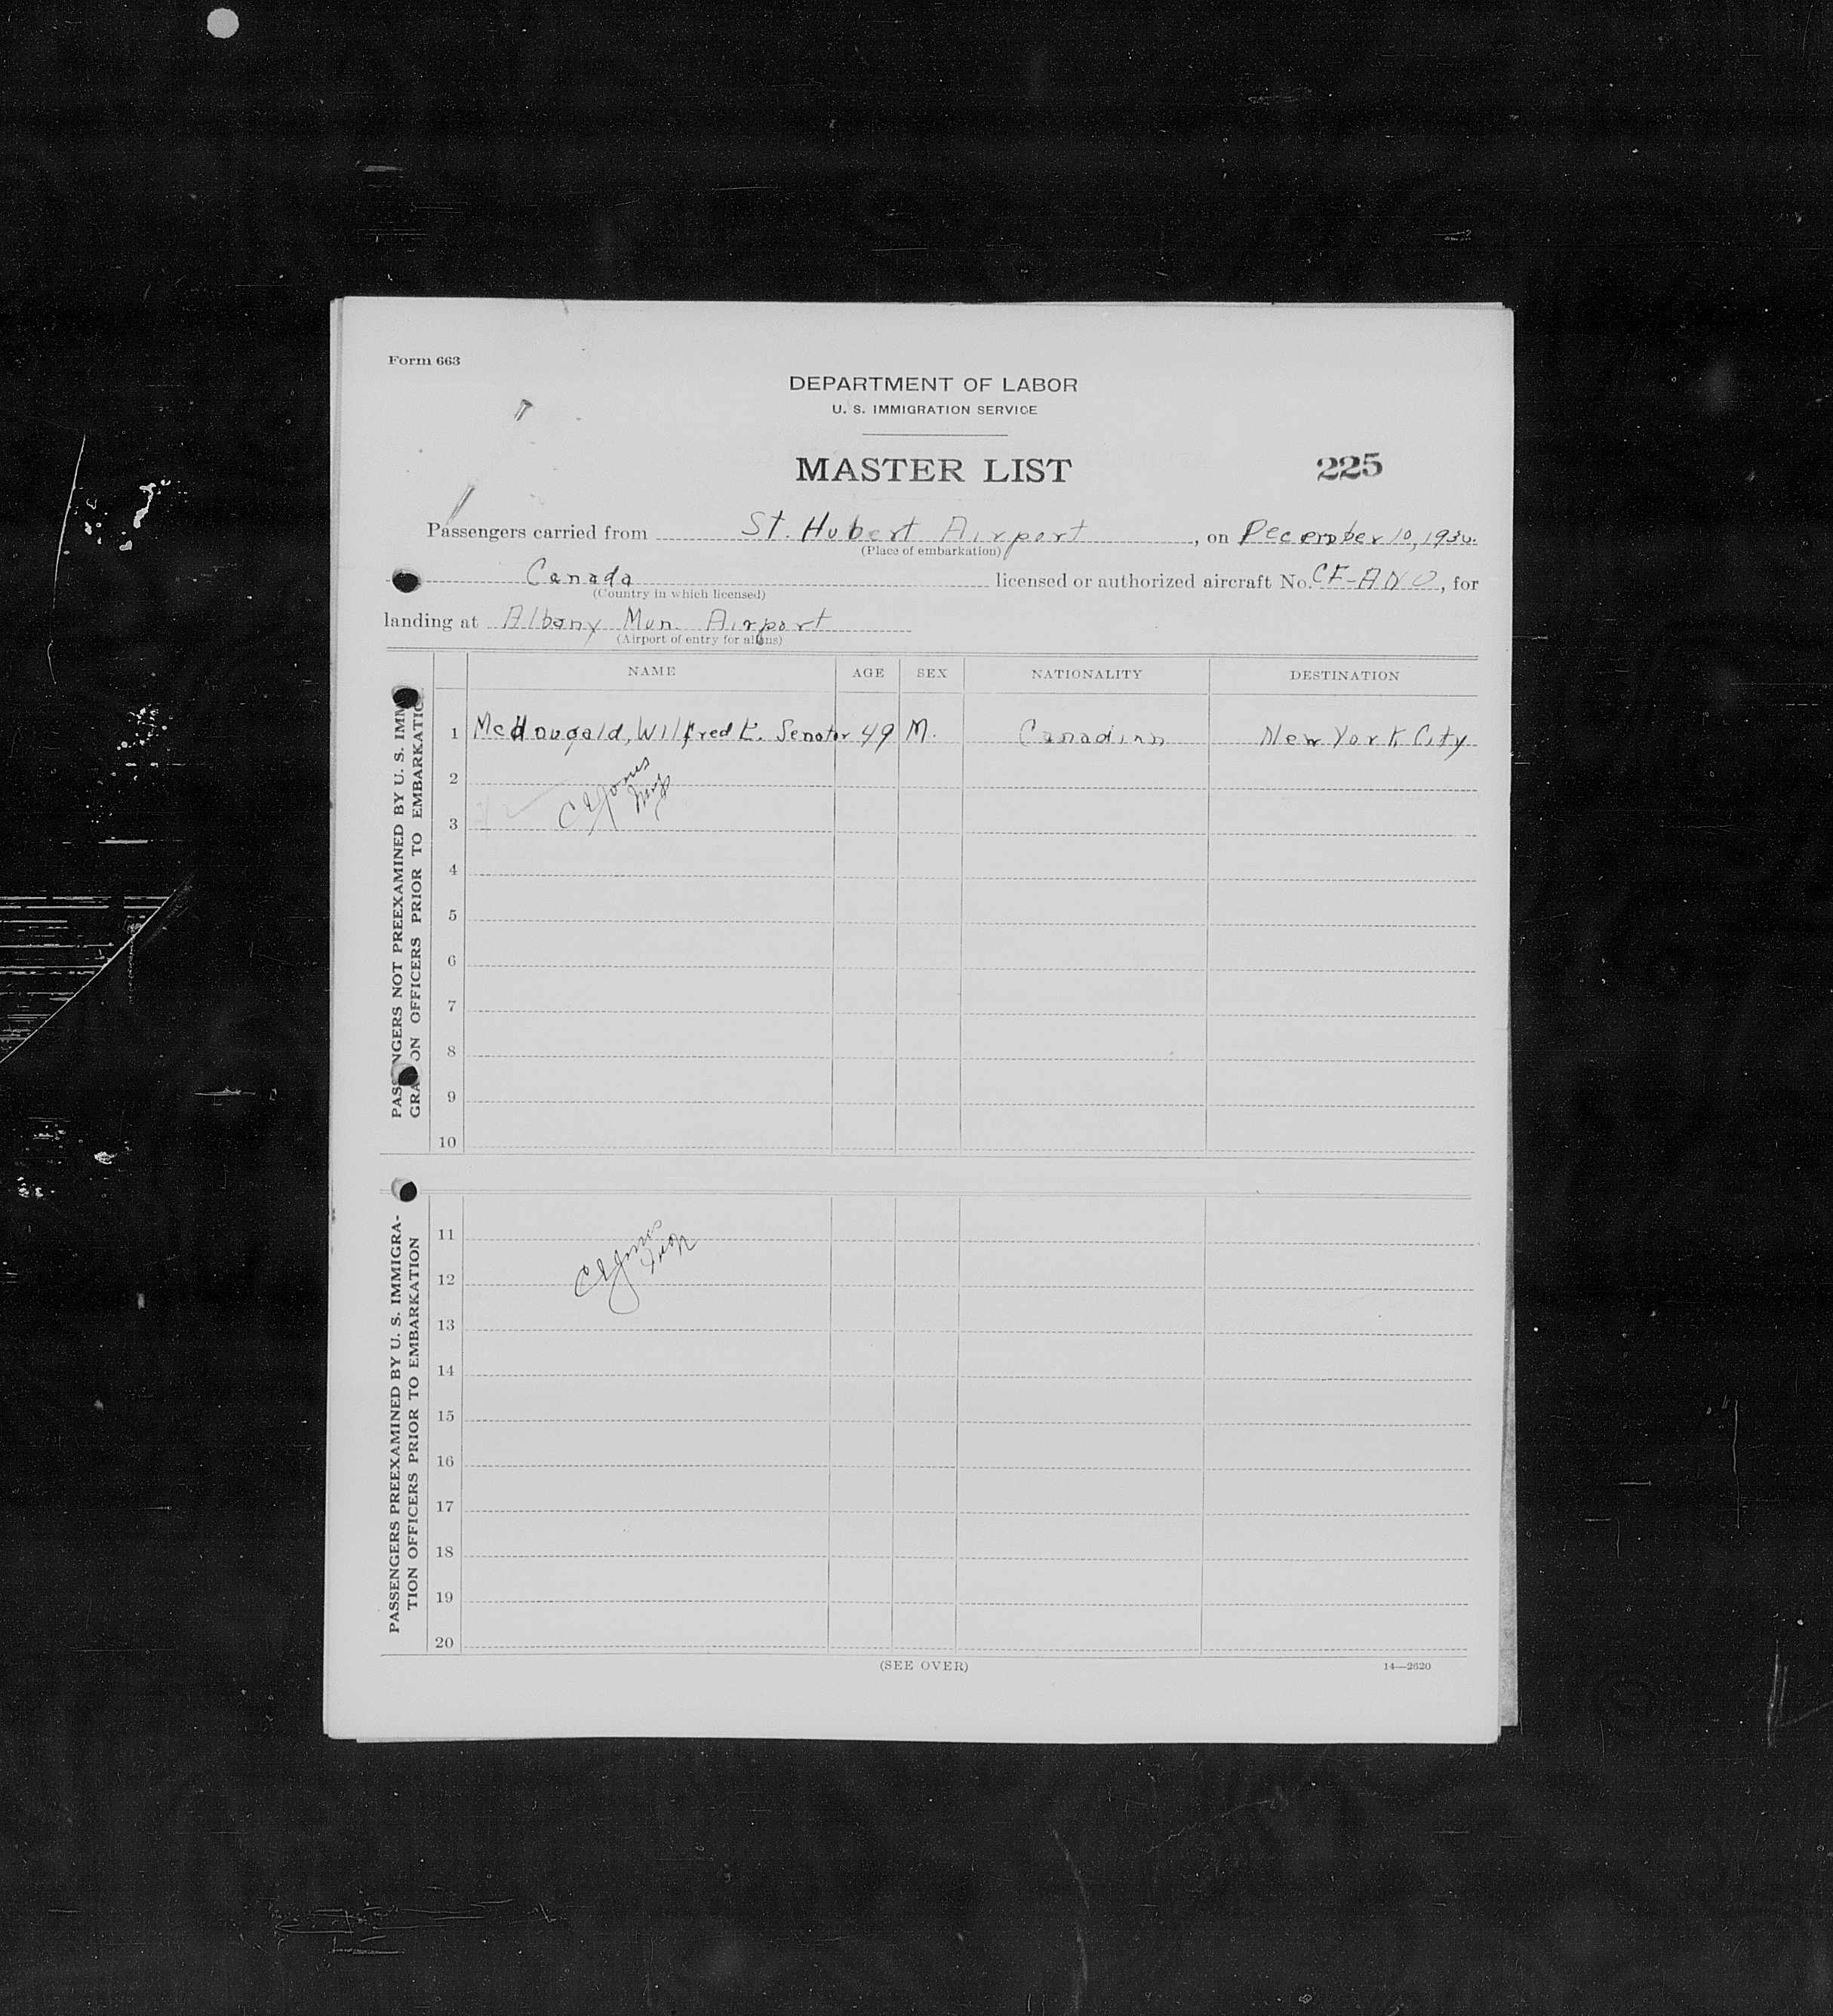 Form 663
DEPARTMENT OF LABOR
U. S. IMMIGRATION SERVICE
MASTER LIST
225
Passengers carried from St. Hubert Airport, on December 10, 1930.
(Place of embarkation)
Canada licensed or authorized aircraft No. CF-ANO, for
(Country in which licensed)
landing at Albany Mun. Airport
(Airport of entry for aliens)
NAME AGE SEX NATIONALITY DESTINATION
PASSENGERS NOT PREEXAMINED BY U. S. IMMI
GRATION OFFICERS PRIOR TO EMBARKATIO
1 McDougald, Wilfred L. Senator 49 M. Canadian New York City
2
3
C E Jones
4
5
6
7
8
9
10
PASSENGERS PREEXAMINED BY U. S. IMMIGRA-
TION OFFICERS PRIOR TO EMBARKATION
11
12
C E Jones
13
14
15
16
17
18
19
20
(SEE OVER)
14—2620